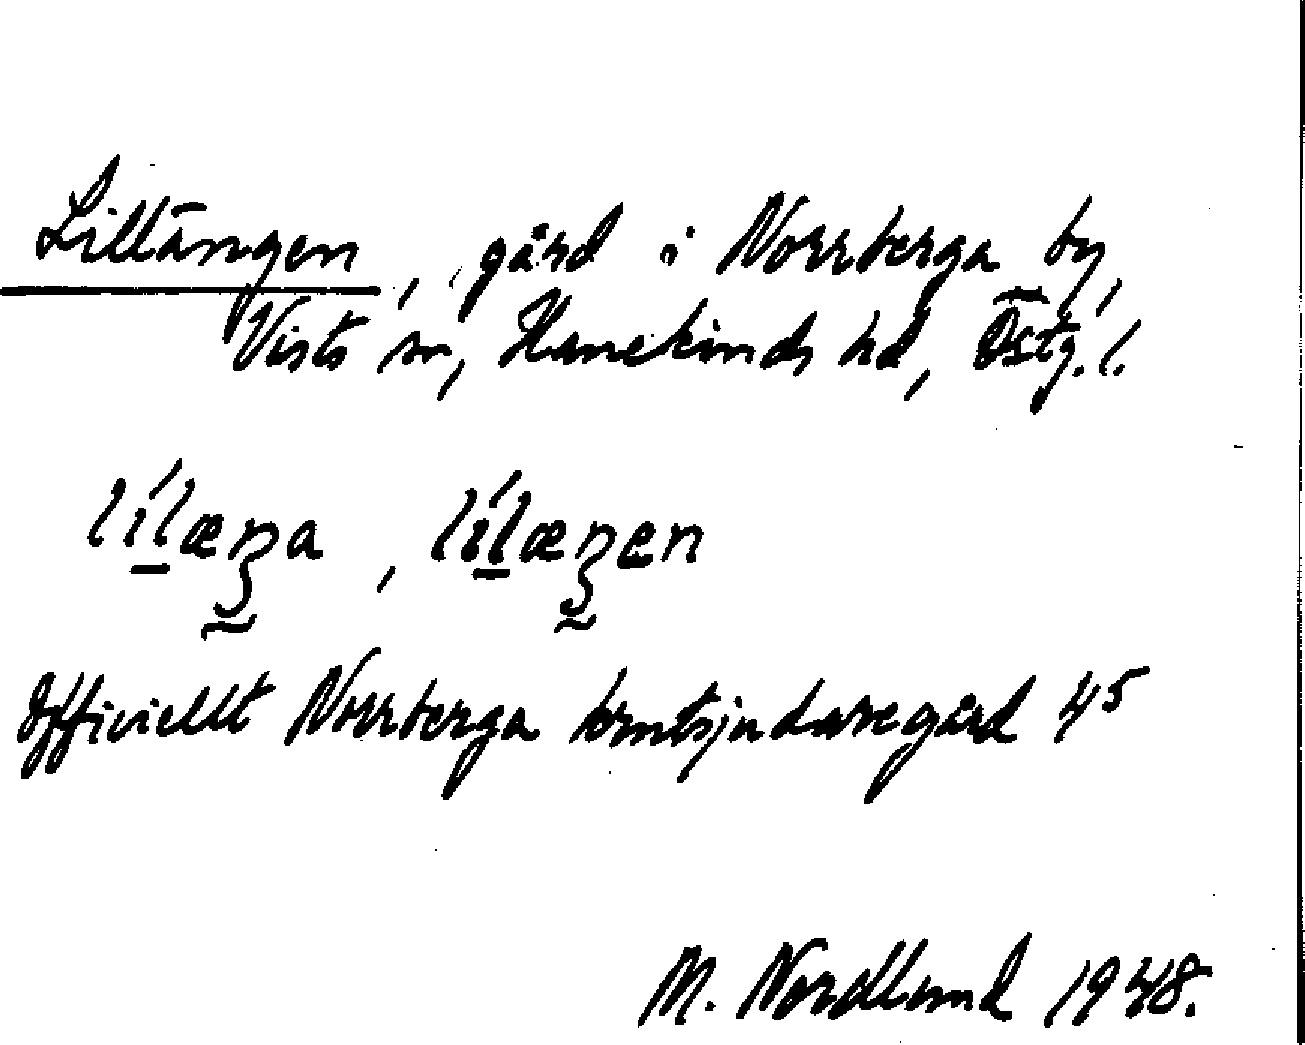 Lillängen, gård i Norrberga by,
Vists sn, Hanekinds hd, Östg. l.
lílæŋa, lílæŋen
Officiellt Norrberga
gård 4⁵
M. Nordlund 1948.